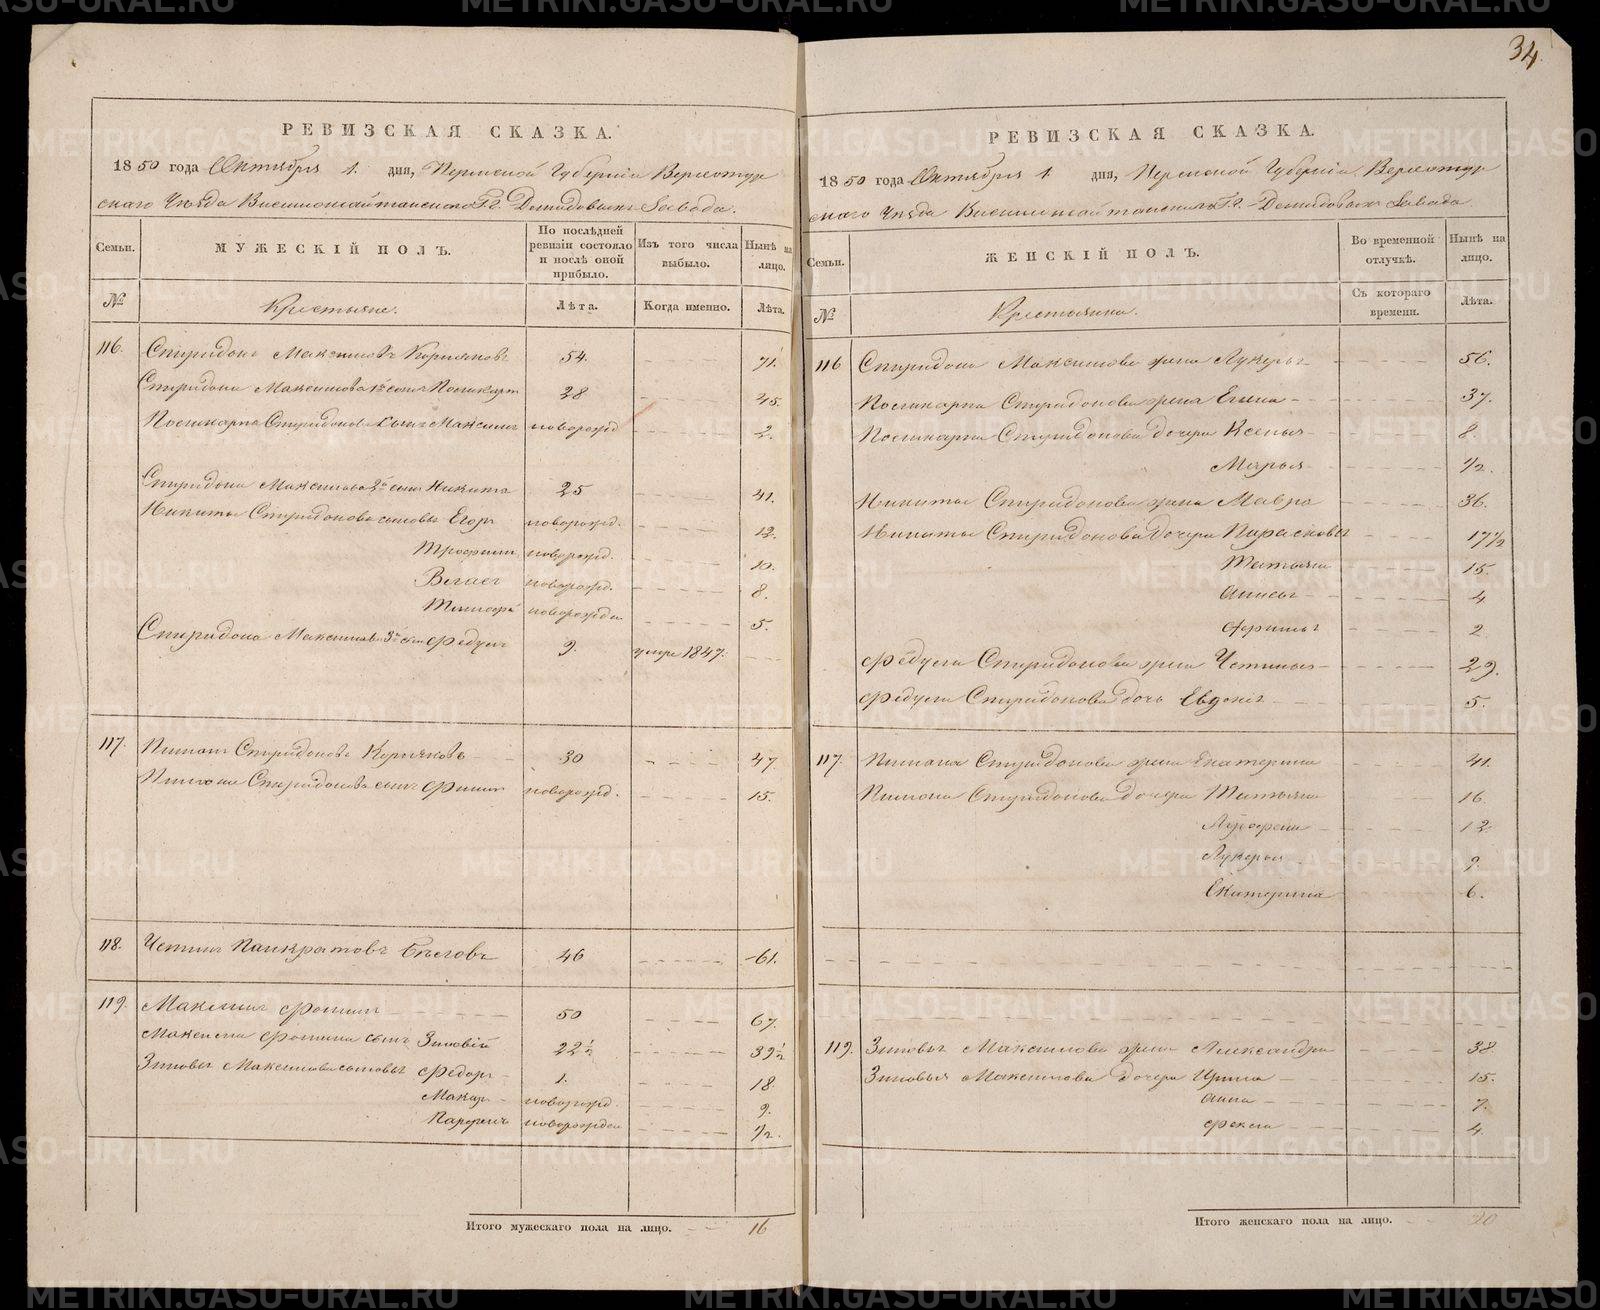 34.
РЕВИЗСКАЯ СКАЗКА.
1850 года Октября 1. дня, Пермской Губернiи Верхотур
скаго Уѣзда Висимошайтанскаго Г.г. Демидовыхъ Завода.
Семьи.
МУЖЕСКIЙ ПОЛЪ.
По послѣдней ревизiи состояло и послѣ оной прибыло.
Изъ того числа выбыло.
Нынѣ на лицо.
№
Крестьяне.
Лѣта.
Когда именно.
Лѣта.
116. Спиридонъ Максимовъ 54. 71.
Спиридона Максимова 1й сынъ Поликарпъ 28 45.
Поликарпа Спиридонова сынъ Максимъ новорожд 2.
Спиридона Максимова 2й сынъ Никита 25 41.
Никиты Спиридонова сыновья Егоръ новорожд. 12.
Трофимъ новорожд. 10.
новорожд. 8.
Тимофѣй новорожден 5.
Спиридона Максимова 3й сынъ Федулъ 9. умре 1847.
117. Пименъ Спиридоновъ 30 47.
Пимена Спиридонова сынъ новорожд. 15.
118. Панкратовъ Бѣловъ 46 61.
119. Максимъ Фоминъ 50 67.
Максима Фомина сынъ Зиновiй 22½ 39½
Зиновья Максимова сыновья Федоръ 1. 18.
Макаръ новорожд. 9.
Парфенъ новорожден 1/2.
Итого мужескаго пола на лицо. 16
РЕВИЗСКАЯ СКАЗКА.
1850 года Октября 1 дня, Пермской Губернiи Верхотур
скаго Уѣзда Висимошайтанскаго Г.г. Демидовыхъ Завода.
Семьи.
ЖЕНСКIЙ ПОЛЪ.
Во временной отлучкѣ.
Нынѣ на лицо.
№
Крестьянки.
Съ котораго времени.
Лѣта.
116 Спиридона Максимова жена Лукерья 56.
Поликарпа Спиридонова жена Елена 37.
Поликарпа Спиридонова дочери Ксенья 8.
Марья 1/2.
Никиты Спиридонова жена Мавра 36.
Никиты Спиридонова дочери Парасковья 17½
Татьяна 15.
Анисья 4
2
Федула Спиридонова жена 29.
Федула Спиридонова дочь Евдокiя 5.
117. Пимена Спиридонова жена Екатерина 41.
Пимена Спиридонова дочери Татьяна 16.
12
Лукерья 9.
Екатерина 6.
119. Зиновья Максимова жена Александра 38.
Зиновья Максимова дочери Ирина 15.
Анна 7.
Фекла 4.
Итого женскаго пола на лицо. 20
METRIKI.GASO-URAL.RU